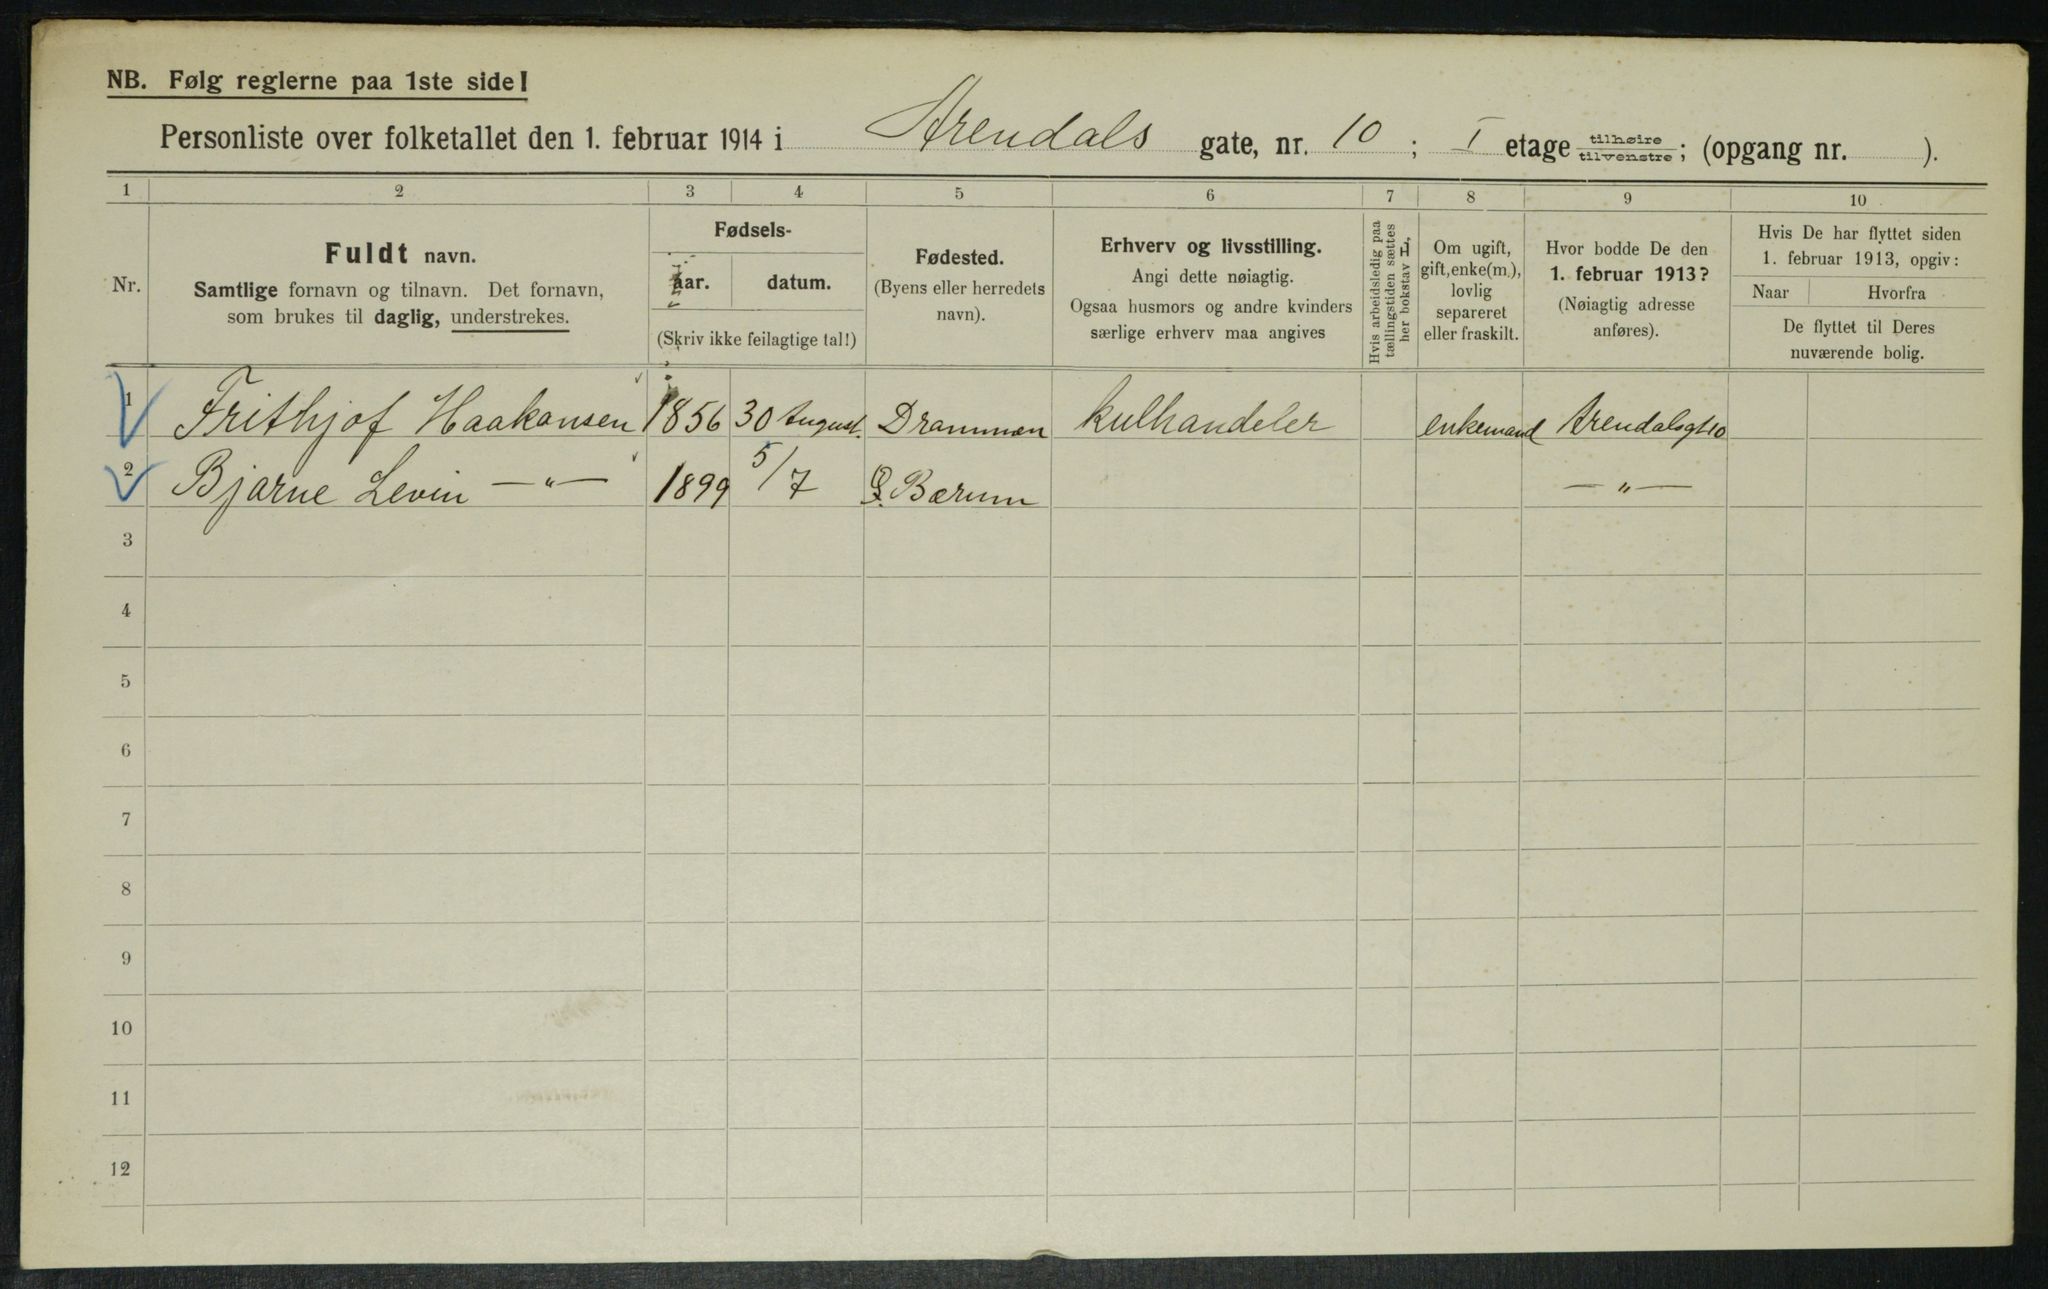 NB. Følg reglerne paa 1ste side!
Personliste over folketallet den 1. februar 1914 i Arendals gate, nr. 10 ; I etage tilhøire / tilvenstre ; (opgang nr. ).
1 2 3 4 5 6 7 8 9 10
Nr.
Fuldt navn.
Samtlige fornavn og tilnavn. Det fornavn,
som brukes til daglig, understrekes.
Fødsels-
aar. datum.
(Skriv ikke feilagtige tal!)
Fødested.
(Byens eller herredets
navn).
Erhverv og livsstilling.
Angi dette nøiagtig.
Ogsaa husmors og andre kvinders
særlige erhverv maa angives
Hvis arbeidsledig paa
tællingstiden sættes
her bokstav L,
Om ugift,
gift, enke(m.),
lovlig
separeret
eller fraskilt.
Hvor bodde De den
1. februar 1913?
(Nøiagtig adresse
anføres).
Hvis De har flyttet siden
1. februar 1913, opgiv:
Naar Hvorfra
De flyttet til Deres
nuværende bolig.
1 Frithjof Haakonsen 1856 30 August. Drammen kulhandeler enkemand Arendalsgt 10
2 Bjarne Levin —"— 1899 5/7 Ø. Bærum —"—
3
4
5
6
7
8
9
10
11
12